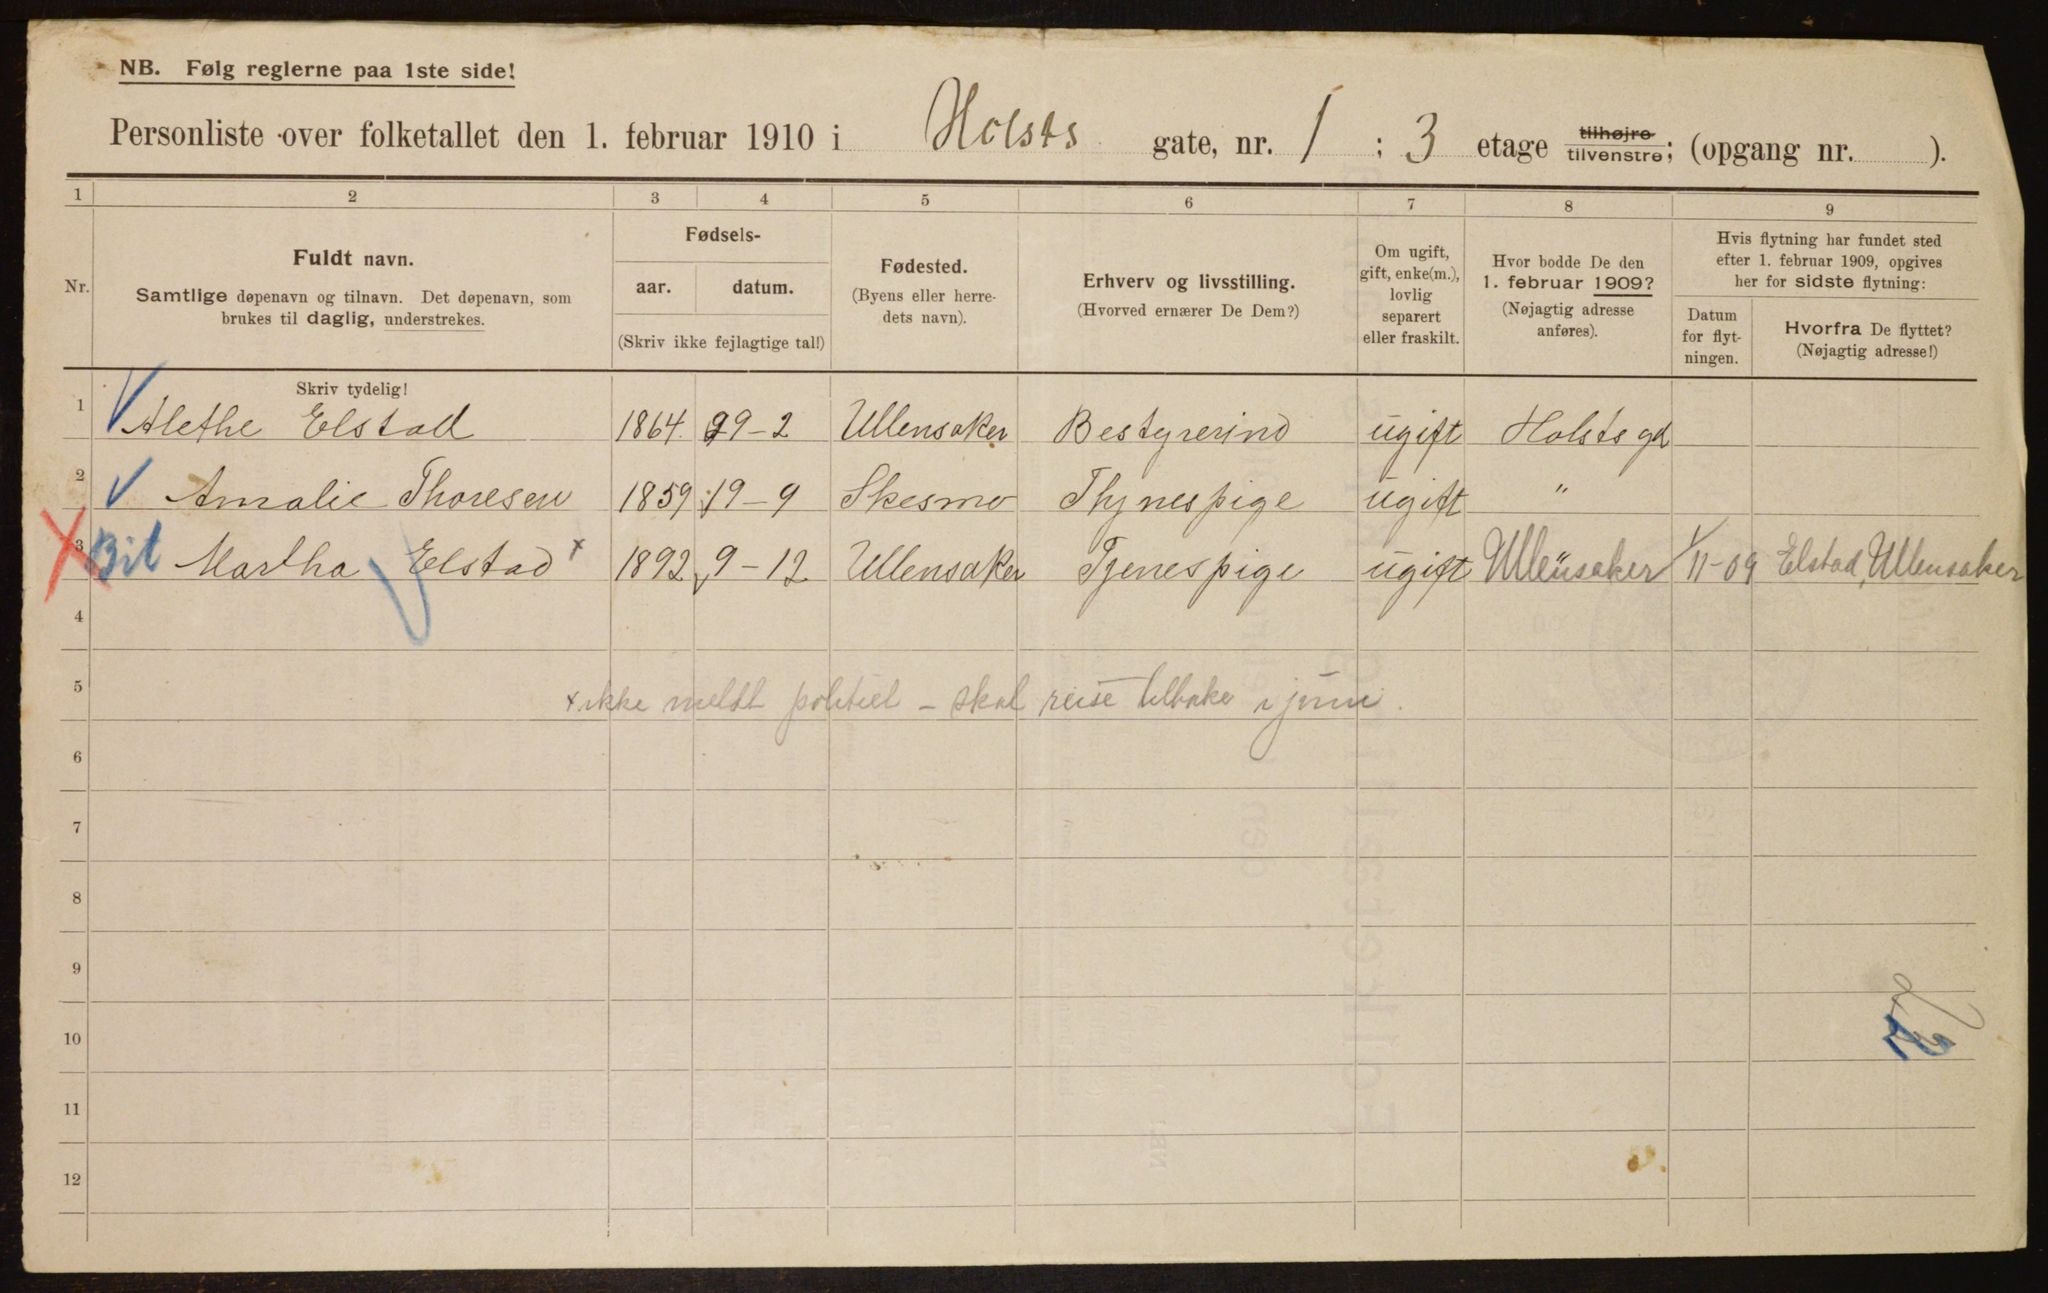 NB. Følg reglerne paa 1ste side!
Personliste over folketallet den 1. februar 1910 i Holsts gate, nr. 1 ; 3 etage tilhøjre tilvenstre; (opgang nr. ).
1 2 3 4 5 6 7 8 9
Nr.
Fuldt navn.
Samtlige døpenavn og tilnavn. Det døpenavn, som
brukes til daglig, understrekes.
Fødsels-
aar. datum.
(Skriv ikke fejlagtige tal!)
Fødested.
(Byens eller herre-
dets navn).
Erhverv og livsstilling.
(Hvorved ernærer De Dem?)
Om ugift,
gift, enke(m.),
lovlig
separert
eller fraskilt.
Hvor bodde De den
1. februar 1909?
(Nøjagtig adresse
anføres).
Hvis flytning har fundet sted
efter 1. februar 1909, opgives
her for sidste flytning:
Datum
for flyt-
ningen.
Hvorfra De flyttet?
(Nøjagtig adresse!)
Skriv tydelig!
1 Alethe Elstad 1864 29-2 Ullensaker Bestyrerind ugift Holsts gd
2 Amalie Thoresen 1859 19-9 Skesmo Thjnespige ugift "
3 Bit Martha Elstad x 1892 9-12 Ullensaker Tjenespige ugift Ullensaker 1/11-09 Elstad, Ullensaker
4
5 x ikke meldt politiet - skal reise tilbake i juni.
6
7
8
9
10
11
12